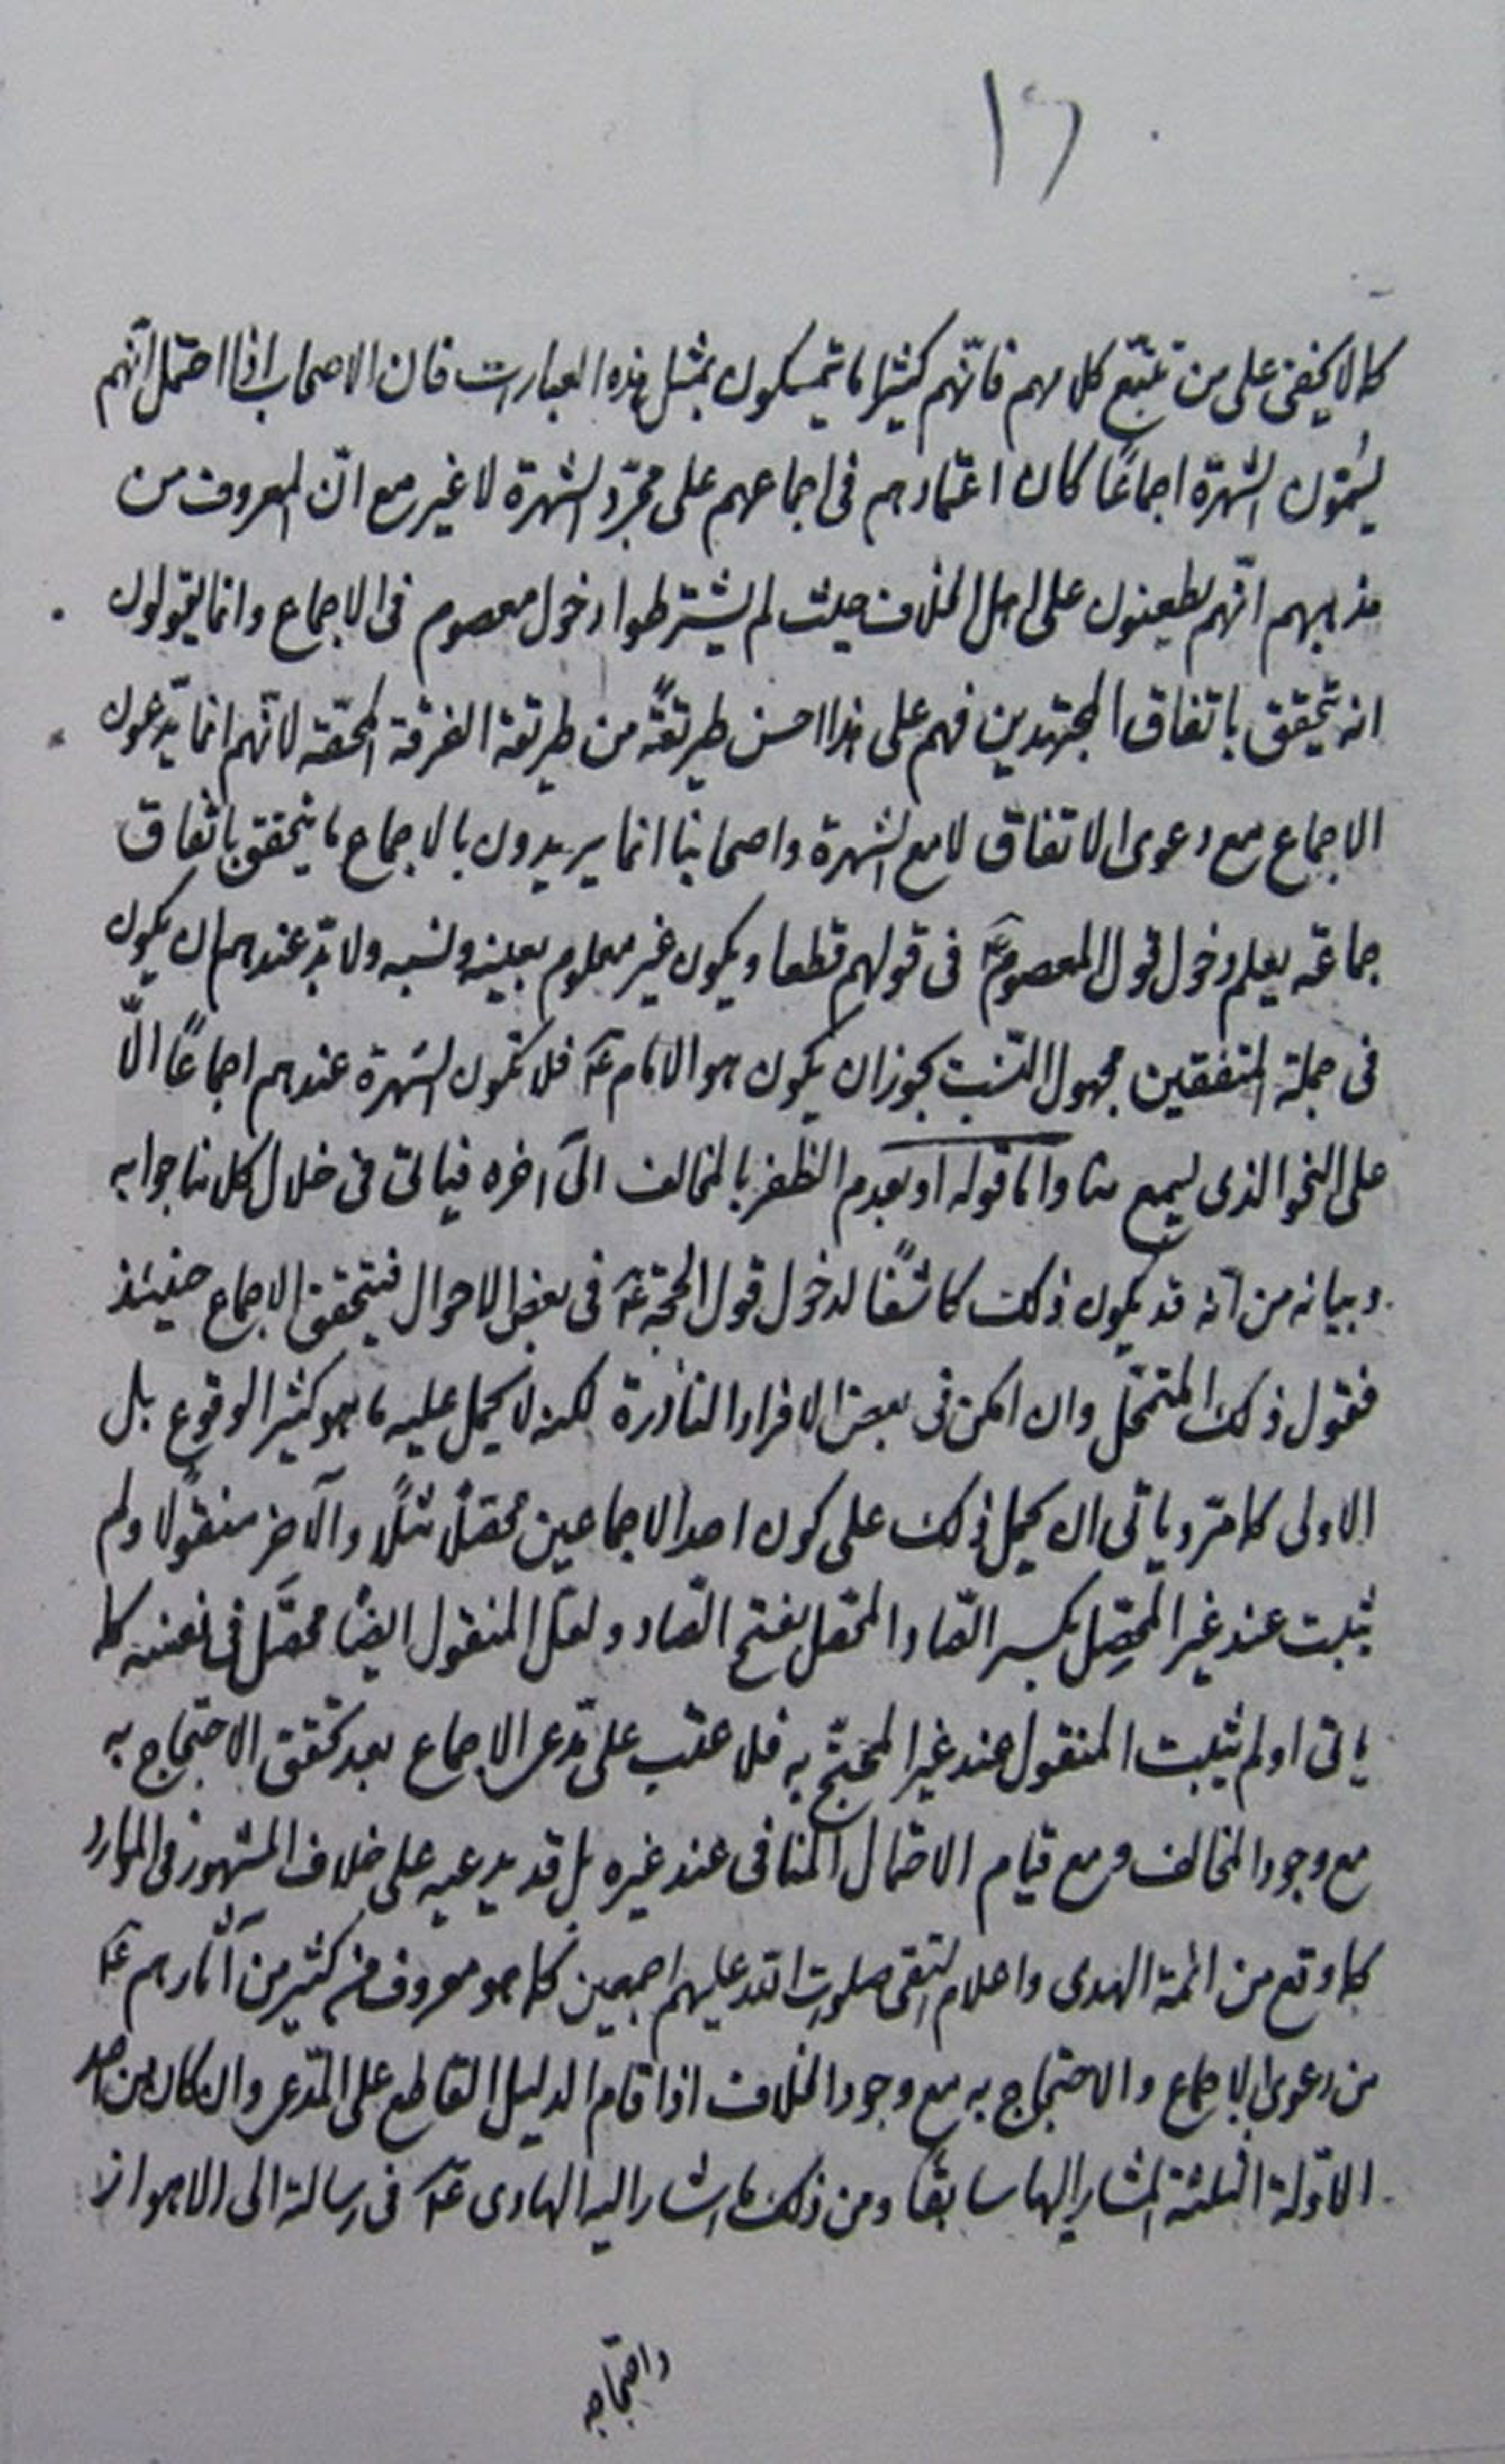 ١٦
كما لا يخفى على من تتبّع كلامهم فانّهم كثيرا ما يتمسكون بمثل هذه العبارات فان الاصحاب اذا احتمل انّهم
يسمّون الشهرة اجماعًا كان اعتمادهم فى اجماعهم على مجرّد الشهرة لا غير مع انّ المعروف من
مذهبهم انّهم يطعنون على اهل الخلاف حيث لم يشترطوا دخول معصوم فى الاجماع وانما يقولون
انه يتحقق باتفاق المجتهدين فهم على هذا احسن طريقةً من طريقة الفرقة المحقّه لانّهم انما يدّعون
الاجماع مع دعوى الاتفاق لا مع الشهرة واصحابنا انما يريدون بالاجماع ما يتحقق باتفاق
جماعة يعلم دخول قول المعصوم عَ فى قولهم قطعا ويكون غير معلوم بعينه ونسبه ولا بدّ عندهم ان يكون
فى جملة المتفقين مجهول النّسب يجوز ان يكون هو الامام عَ فلا تكون الشهرة عندهم اجماعًا الّا
على النحو الذى ليسمع منا وامّا قوله او بعدم الظفر بالمخالف الى آخره فياتى فى خلال كلامنا جوابه
وبيانه من انّه قد يكون ذلك كاشفًا لدخول قول الحجة عَ فى بعض الاحوال فيتحقق الاجماع حينئذ
فقول ذلك المتمحّل وان امكن فى بعض الافراد النادرة لكنه لا يحمل عليه ما هو كثير الوقوع بل
الاولى كما مرّ وياتى ان يحمل ذلك على كون احد الاجماعين محصّلًا مثلًا والآخر منقولًا ولم
يثبت عند غير المحصِّل بكسر الصّاد المحصّل بفتح الصّاد ولعلّ المنقول ايضًا محصّل فى نفسه كما
ياتى او لم يثبت المنقول عند غير المحتجّ به فلا عتب على مدّعى الاجماع بعد تحقق الاحتجاج به
مع وجود المخالف ومع قيام الاحتمال المنافى عند غيره بل قد يدعيه على خلاف المشهور فى الموارد
كما وقع من ائمة الهدى واعلام التقى صلوات الله عليهم اجمعين كما هو معروف فى كثير من آثارهم عَ
من دعوى الاجماع والاحتجاج به مع وجود الخلاف اذا قام الدليل القاطع على المدّعى وان كان من احد
الادّلة الثلثة المشار اليها سابقًا ومن ذلك ما اشار اليه الهادى عَ فى رسالة الى الاهواز
واحتجاجه